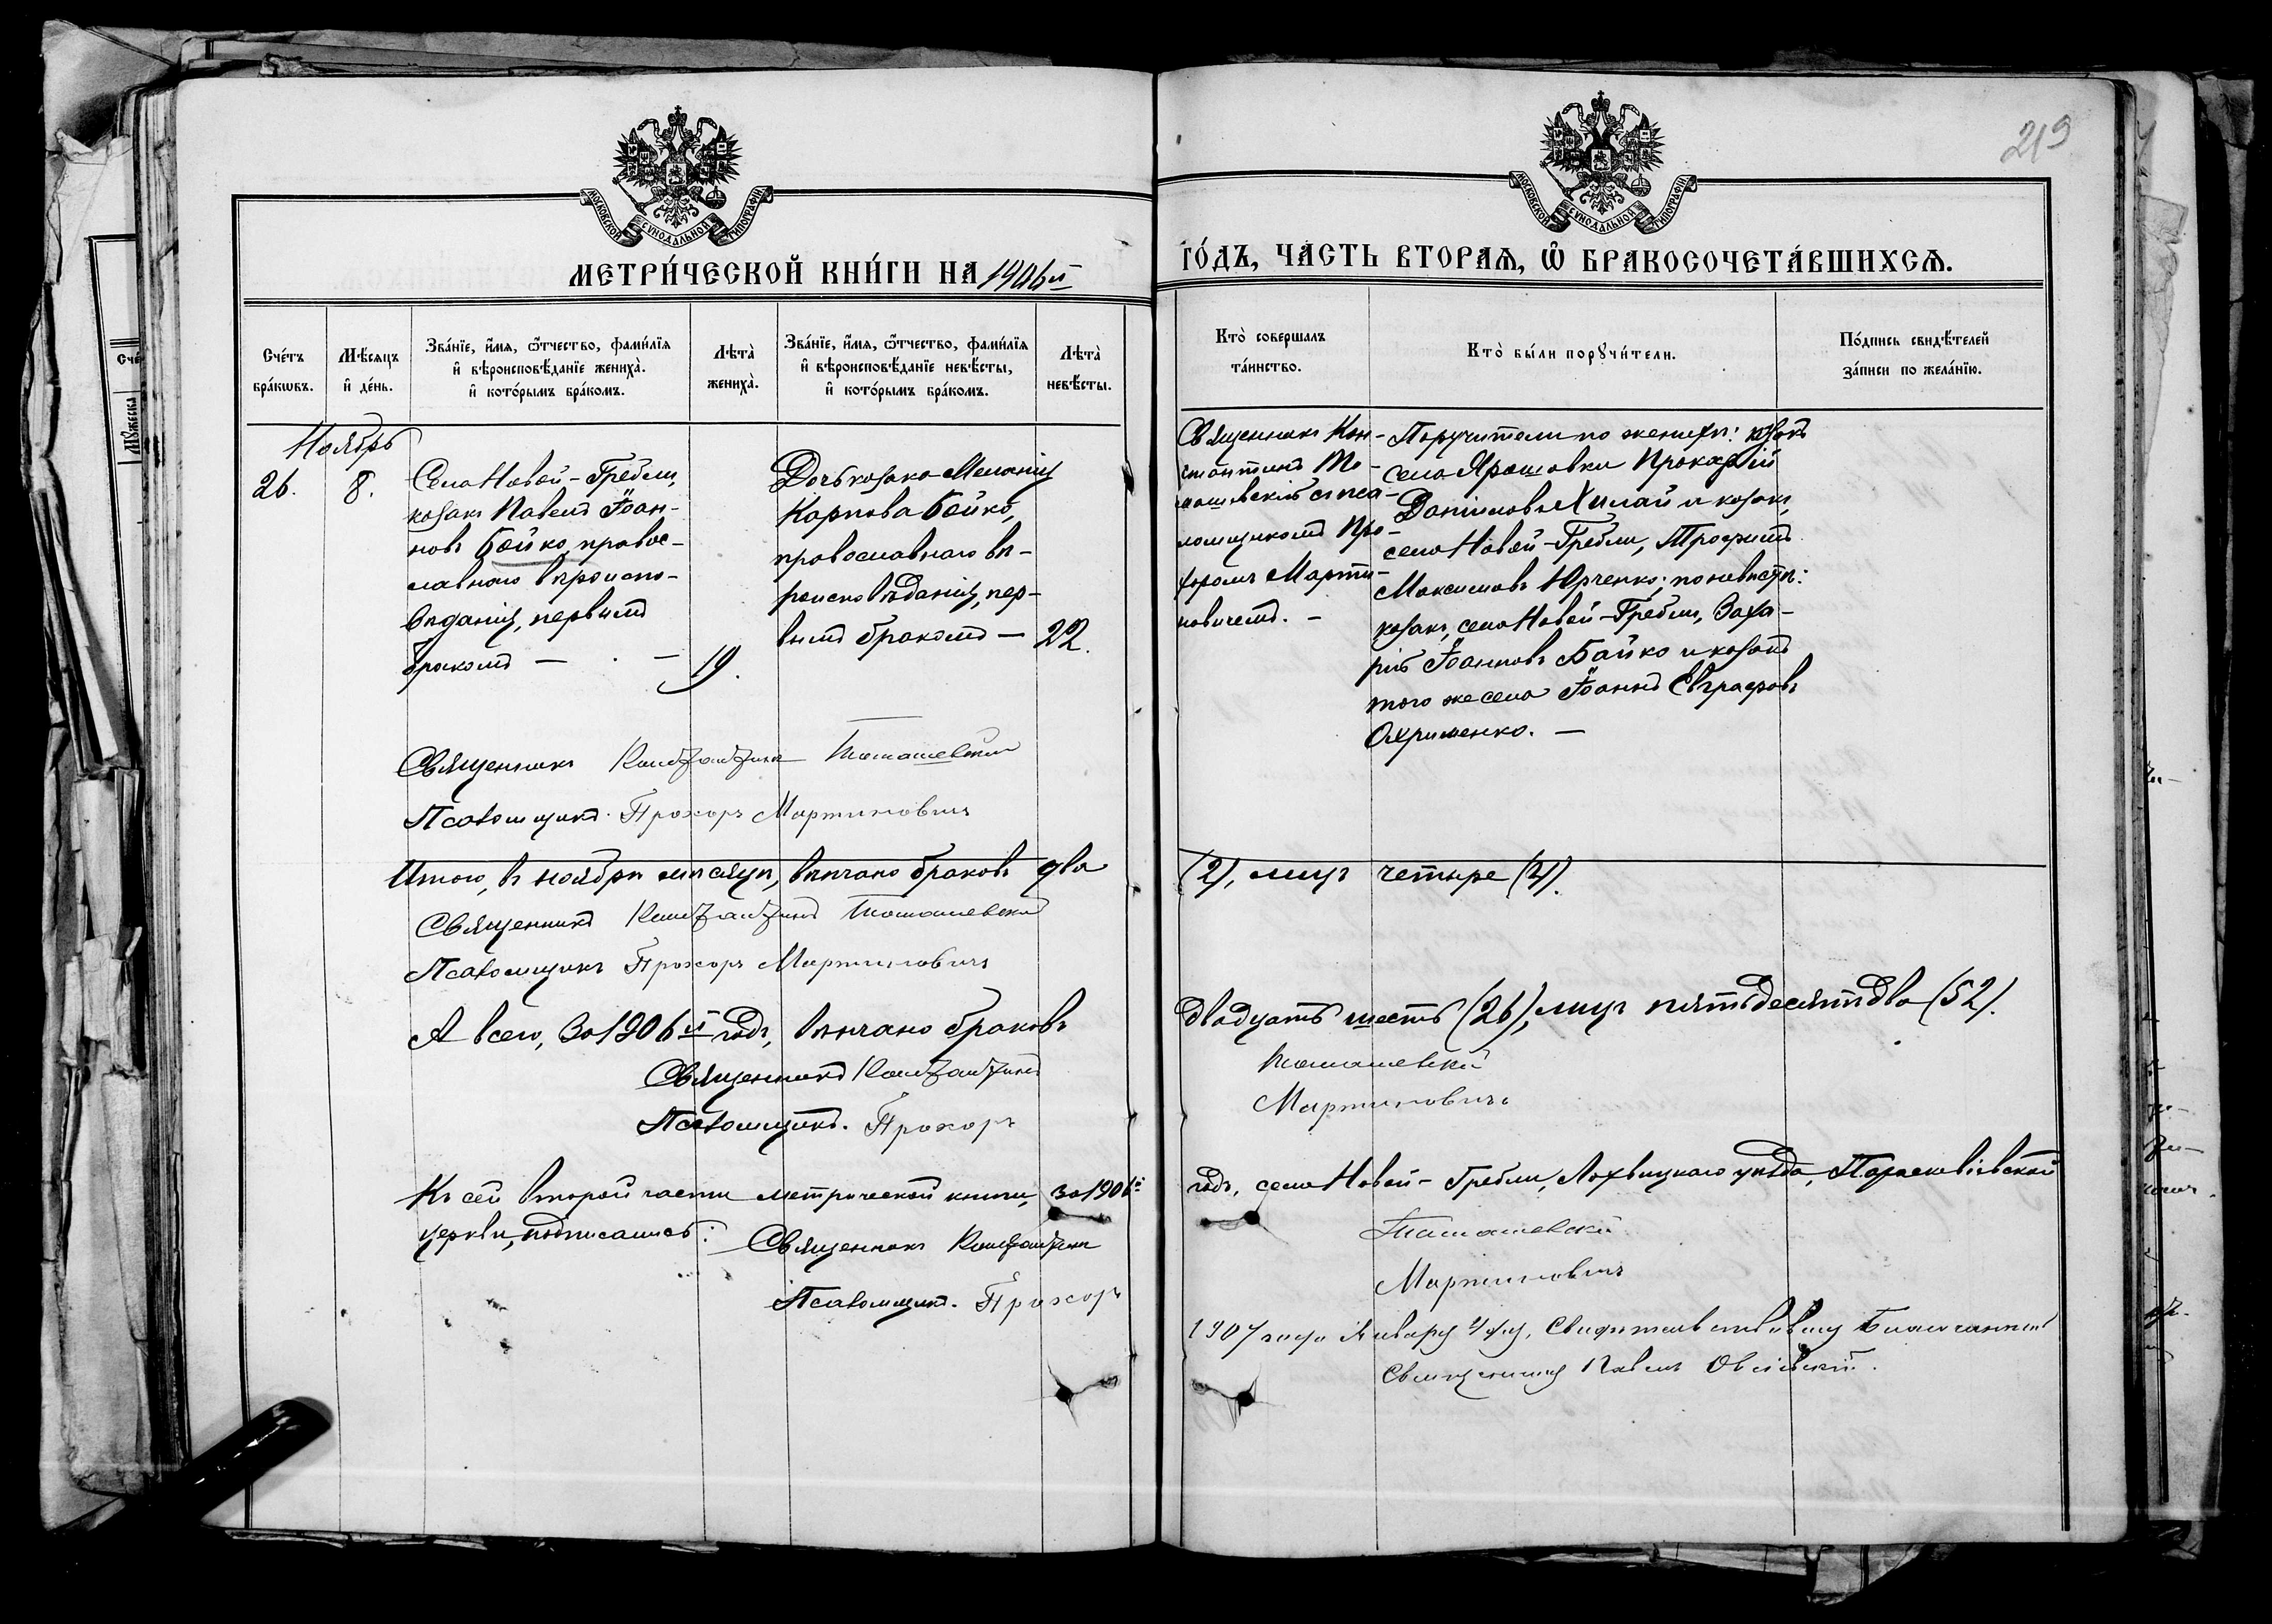 219
МОСКОВСКОЙ СѴНОДАЛЬНОЙ ТИПОГРАФІИ
МОСКОВСКОЙ СѴНОДАЛЬНОЙ ТИПОГРАФІИ
МЕТРИ́ЧЕСКОЙ КНИ́ГИ НА 1906й
ГО́ДЪ, ЧАСТЬ ВТОРАѦ, Ѽ БРАКОСОЧЕТА́ВШИХСѦ.
Сче́тъ
бра́кѡвъ.
Мѣ́сяцъ
и҆ де́нь.
Зва́нїе, и҆́мя, ѻ҆́тчество, фами́лїя
и҆ вѣроисповѣ́данїе жениха̀.
и҆ кото́рымъ бра́комъ.
Лѣта̀
жениха̀.
Зва́нїе, и҆́мя, ѻ҆́тчество, фами́лїя
и҆ вѣроисповѣ́данїе невѣ́сты,
и҆ кото́рымъ бра́комъ.
Лѣта̀
невѣ́сты.
Кто̀ совершалъ
та́инство.
Кто̀ бы́ли порꙋчи́тели.
По́дпись свидѣ́телей
за́писи по жела́нїю.
Ноябрь
26.
8.
Села Новой-Гребли,
козакъ Павелъ Іоан-
новъ Бойко, правос-
лавнаго вѣроиспо-
вѣданія, первымъ
бракомъ —
19.
Дочь козака Меланія
Карпова Бойко,
православнаго вѣ-
роисповѣданія, пер-
вымъ бракомъ — 22.
Священникъ Кон-
стантинъ То-
машевскій съ пса-
ломщикомъ Про-
хоромъ Марти-
новичемъ. —
Поручители по женихѣ: козакъ
села Ярошовки Прокофій
Даніиловъ Хилай и козакъ
села Новой-Гребли, Трофимъ
Максимовъ Юрченко; по невѣстѣ:
козакъ, села Новой-Гребли, Заха-
рій Іоанновъ Бойко и козакъ
того же села Іоаннъ Евграфовъ
Охрименко. —
Священникъ Константинъ Томашевскій
Псаломщикъ Прохоръ Мартиновичъ
Итого, въ ноябрѣ мѣсяцѣ, вѣнчано браковъ два (2), лицъ четыре (4).
Священникъ Константинъ Томашевскій
Псаломщикъ Прохоръ Мартиновичъ
А всего, за 1906й годъ, вѣнчано браковъ двадцать шесть (26), лицъ пятьдесятъ два (52).
Священникъ Константинъ Томашевскій
Псаломщикъ. Прохоръ Мартиновичъ
Къ сей второй части метрической книги, за 1906й годъ, села Новой-Гребли, Лохвицкаго уѣзда, Параскевіевской
церкви, подписались:
Священникъ Константинъ Томашевскій
Псаломщикъ. Прохоръ Мартиновичъ
1907 года Января 4 дня, Свидетельствовалъ Благочинный
Священникъ Павелъ